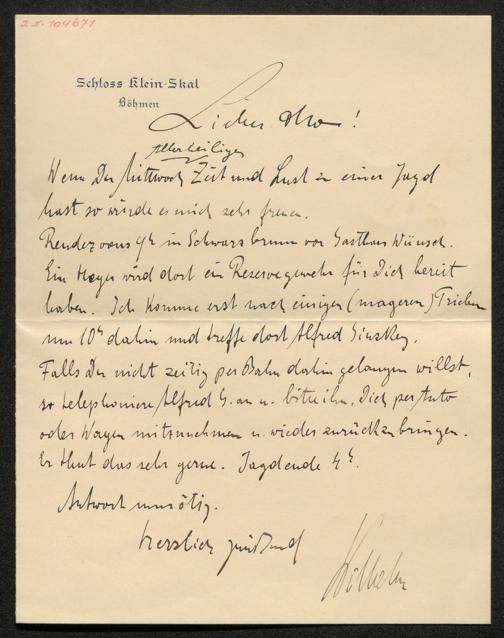 I.N. 104671
Schloss Klein-Skal
Böhmen
Lieber Otto!
Allerheiligen
Wenn Du Mittwoch Zeit und Lust zu einer Jagd
hast so würde es mich sehr freuen.
Rendezvous 9h in Schwarzbrunn vor Gasthaus Wünsch.
Ein Heger wird dort ein Reservegewehr für Dich bereit
haben. Ich komme erst nach einigen (mageren) Trieben
um 10h dahin und treffe dort Alfred Ginzkey.
Falls Du nicht zeitig per Bahn dahin gelangen willst,
so telephoniere Alfred G. an u. bitte ihn, Dich per Auto
oder Wagen mitzunehmen u. wieder zurückzubringen.
Er thut das sehr gerne. Jagdende 4h.
Antwort unnötig.
Herzlich grüßend
Wilhelm